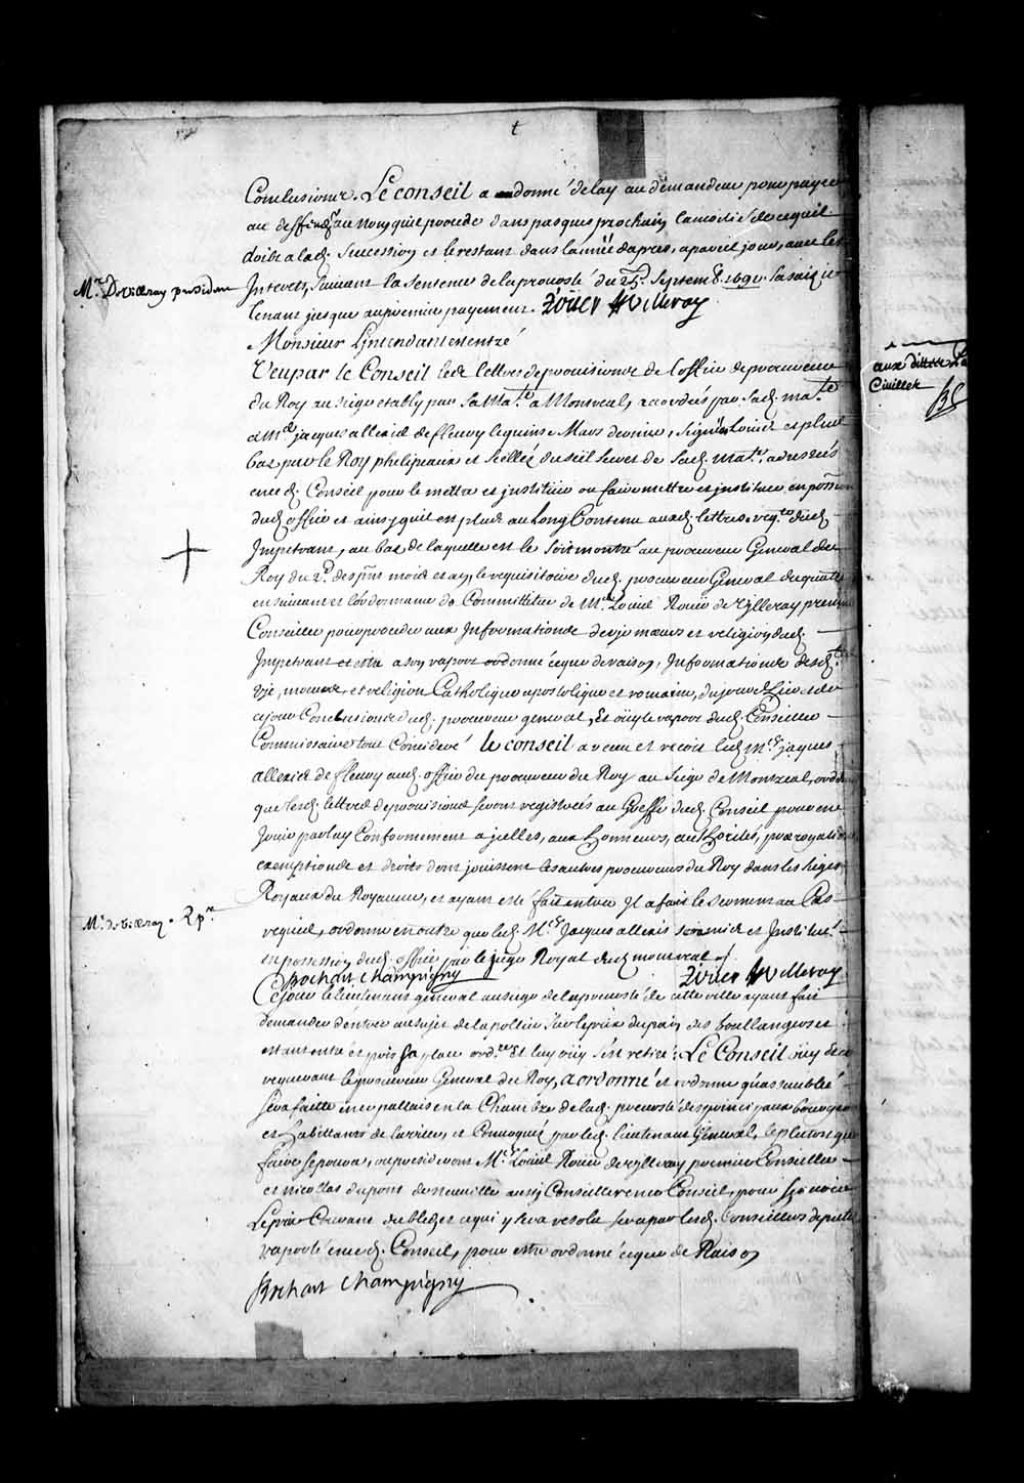 Conclusions. Le Conseil a donné delay au demandeur pour payer
au deffend.r au nom quil procede dans pasques prochain la moitié de ce quil
doibt a lad. succession et le restant dans l'année d'apres, a pareil jour, avec les
Mr. D. villeray president
Interests, suivant la sentence de la prevosté du 25e. Septemb. 1692. la saisie
tenant jusques au premier payement. Roüer de Villeray
Monsieur L'intendant est entré
Veu par le Conseil les lettres de provisions de l'office de procureur
du Roy au siege estably par sa Ma.té a Montreal, accordées par sad. ma.té
a M.e jacques allexis de fleury le quinze Mars dernier, signées Louis et plus
bas par le Roy phelipeaux et scellées du scel secret de sad. ma.té, adressées
en ced. Conseil pour le mettre et instituer ou faire mettre et instituer en possion
dud. office et ainsy quil est plus au long Contenu ausd. lettres, req.te dud.
Impetrant, au bas de laquelle est le soit montré au procureur General du
Roy du 2.d des pns mois et an, le requisitoire dud. procureur General du quatre
ensuivant et l'ordonnance de Committitur de M.e Loüis Roüer de Villeray premier
Conseiller pour proceder aux Informations de vie moeurs et religion dud.
Impetrant a son raport ordonné ce que de raison, Informations desd.
vie, moeurs, et religion Catholique apostolique et romaine, du jour d'hier
ce jour Conclusions dud. procureur general, Et oüy le raport dud. Conseiller
Commissaire tout Consideré le Conseil a receu et reçoit led. M.e jacques
allexis de fleury aud. office de procureur du Roy au siege de Montreal, ordonne
que lesd. lettres de provisions seront registrées au Greffe dud. Conseil pour en
Joüir par luy Conformement a jcelles, aux honneurs, authorités, prerogatives
exemptions et droits dont joüissent les autres procureurs du Roy dans les sieges
Mr. D. villeray. 2 pn.
Royaux du Royaume, et ayant esté fait entrer Il a fait le serment au Cas
requis, ordonne en outre que led. M.e Jacques allexis sera mis et Institué
en possession dud. office par le juge Royal dud. montreal
Bochart Champigny Roüer de Villeray
Ce jour le lieutenant general au siege de la prevosté de cette ville ayant fait
demander d'entrer au sujet de la police sur le prix du pain des boullangers et
estant entré et pris sa place ord.re Et luy oüy s'est retiré: Le Conseil oüy Et ce
requerant le procureur General du Roy, a ordonné et ordonne qu'assemblée
sera faitte en ce pallais en la Chambre de lad. prevosté des principaux bourgeois
et habittans de la ville, et Convoqués par led. lieutenant General, le plutost que
faire se poura, ou presideront M.e Loüis Roüer de Villeray premier Conseiller
et nicollas dupont de neuville aussy Conseiller en ce Conseil, pour
le prix Courant des bleds et ce qui y sera resolu sera par lesd. Conseillers deputés
raporté en ced. Conseil, pour estre ordonné ce que de Raison
Bochart Champigny
aux dittes
Civilles